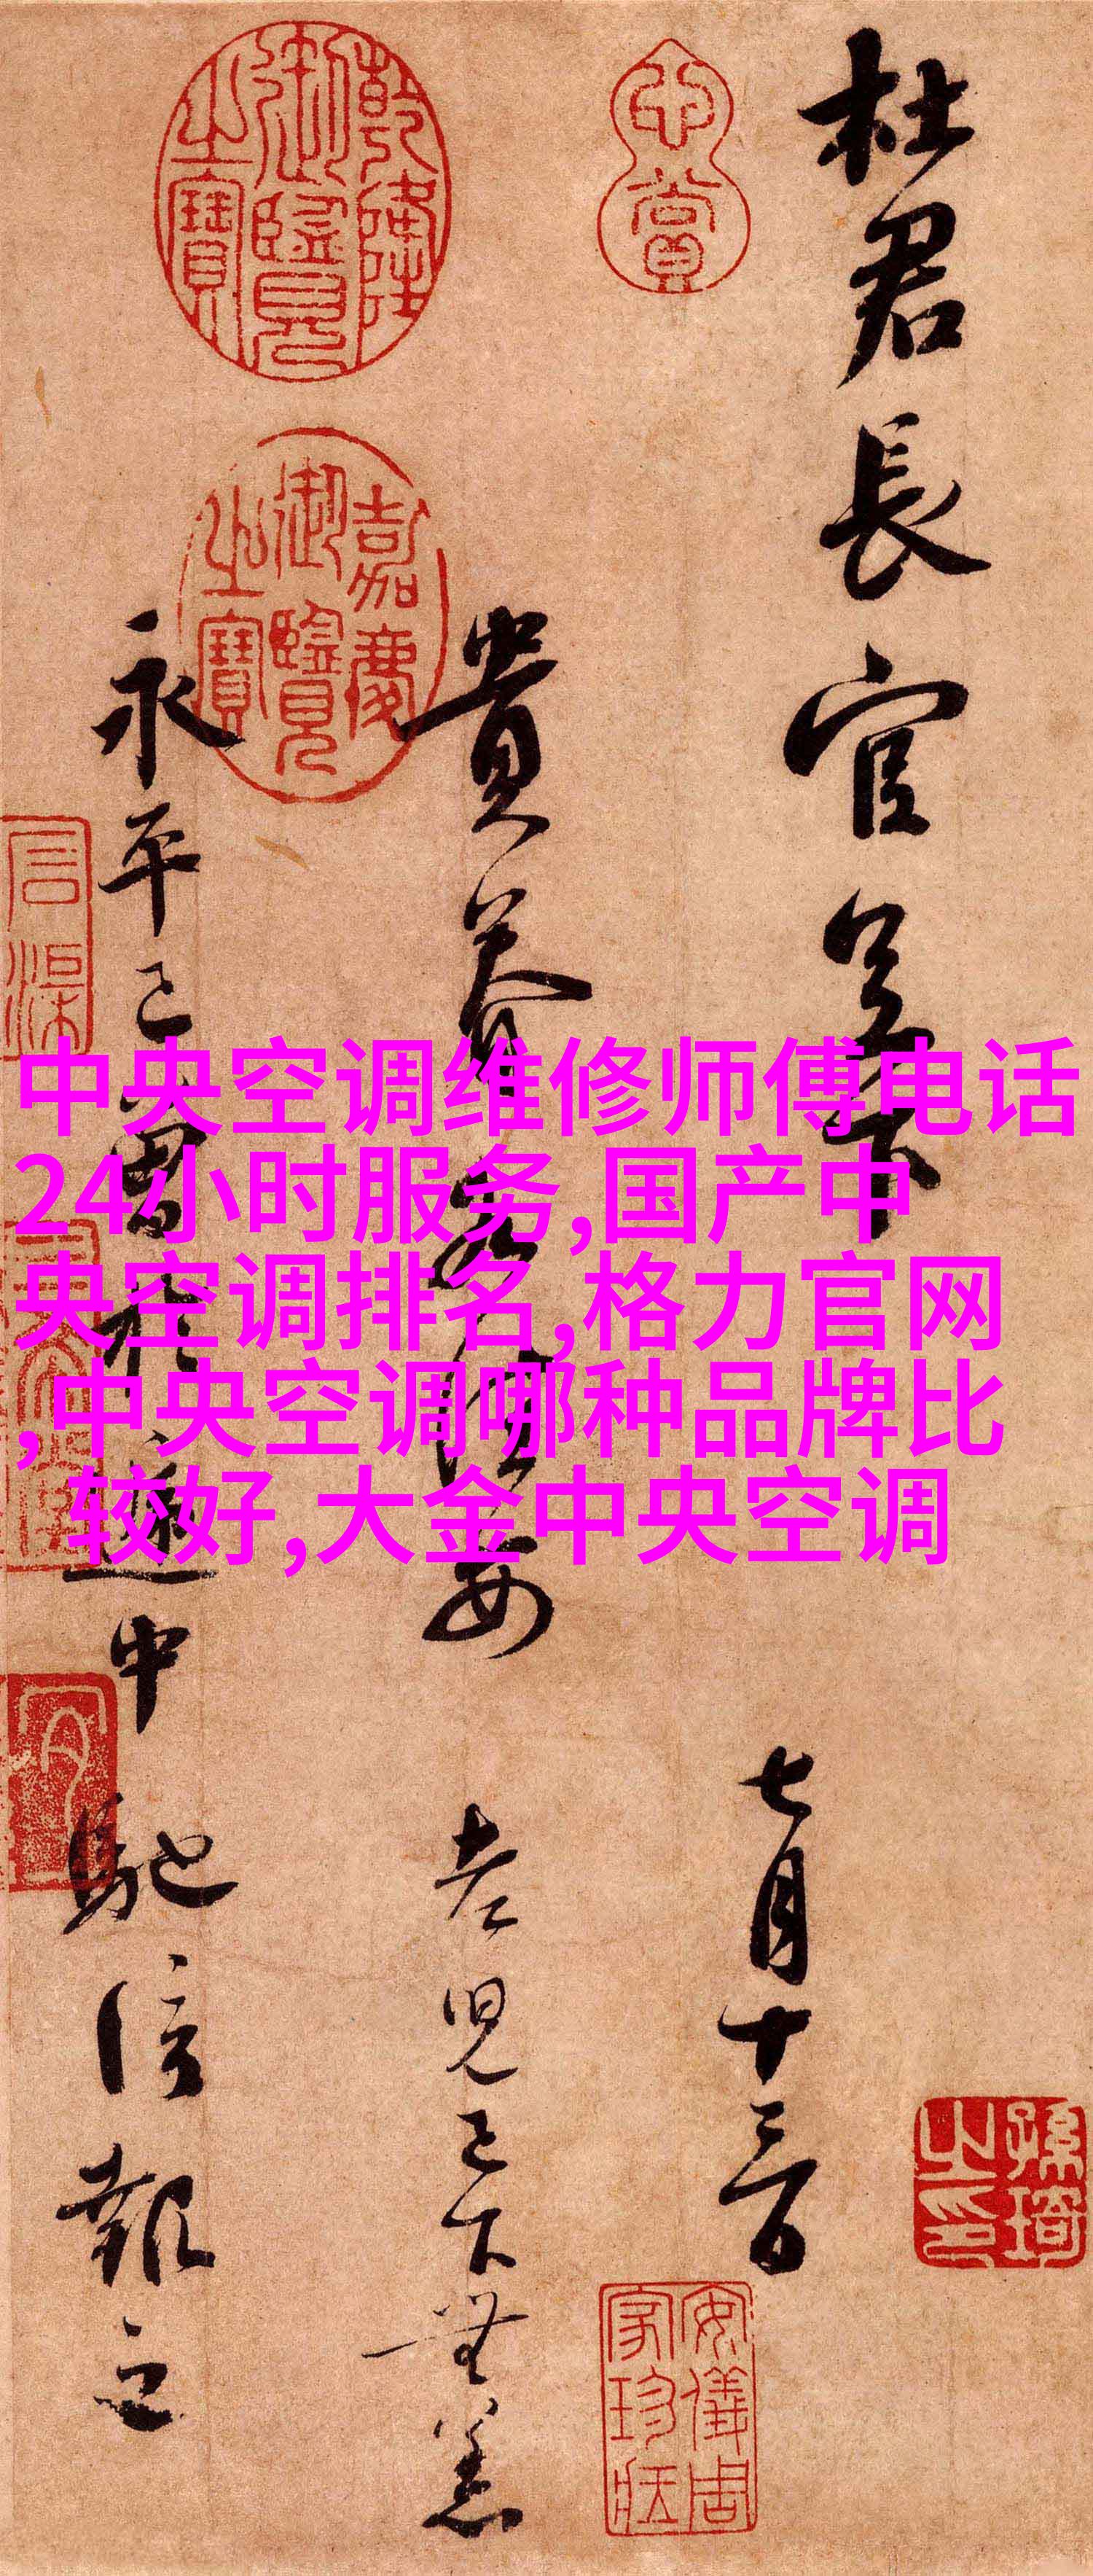 杜君長官足下
七月十三日
貴眷各佳安
老兒已下無恙
永平已曾於遞中
馳信報之
乾隆御覽之寶
嘉慶御覽之寶
心賞
孫琦之印
安儀周家珍藏
中央空调维修师傅电话
24小时服务,国产中
央空调排名,格力官网
,中央空调哪种品牌比
较好,大金中央空调